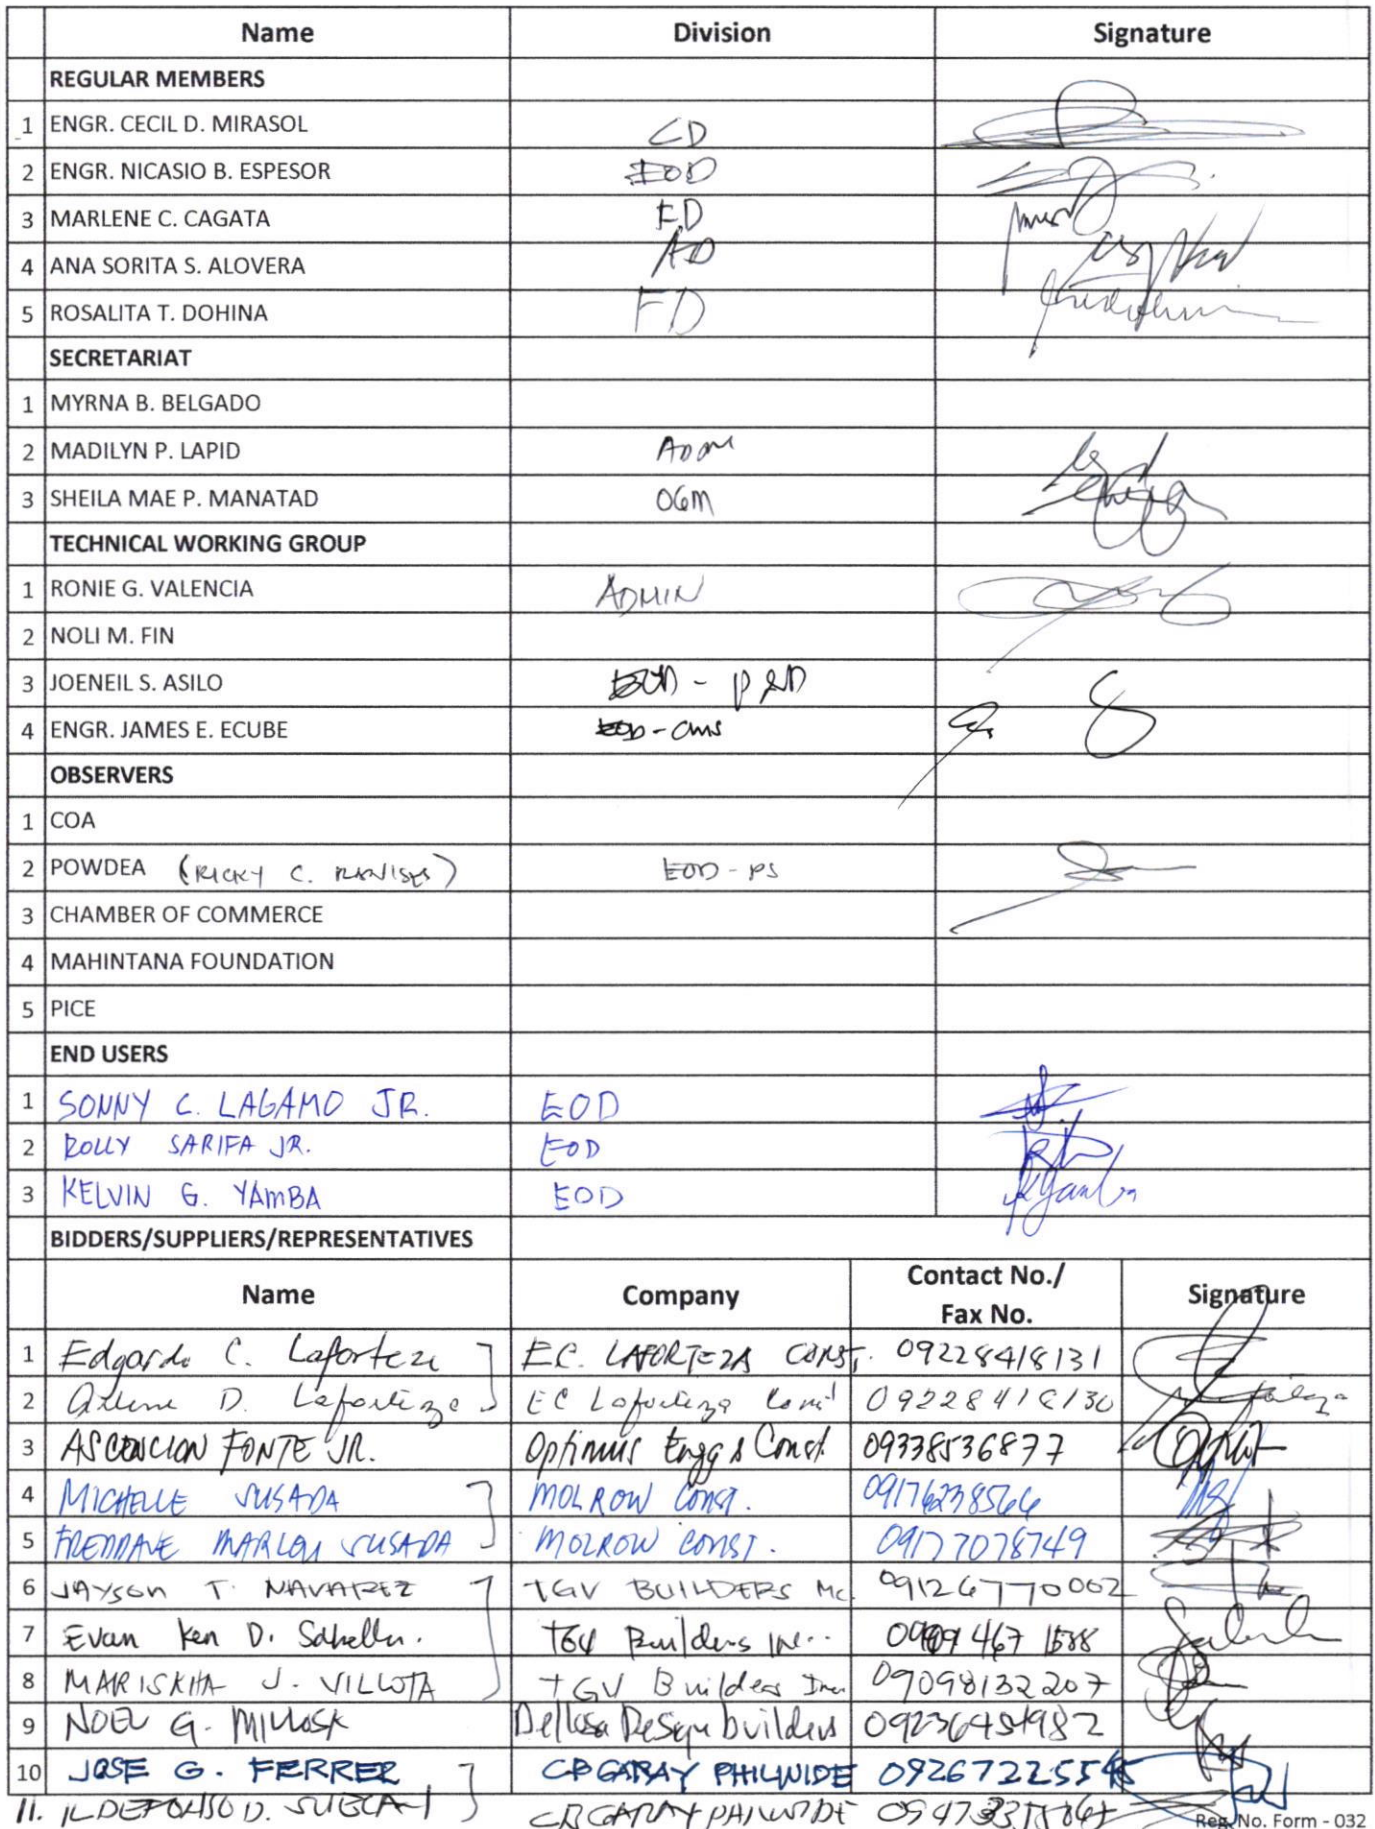 Name Division Signature
REGULAR MEMBERS
1 ENGR. CECIL D. MIRASOL CD
2 ENGR. NICASIO B. ESPESOR EOD
3 MARLENE C. CAGATA FD
4 ANA SORITA S. ALOVERA AD
5 ROSALITA T. DOHINA FD
SECRETARIAT
1 MYRNA B. BELGADO
2 MADILYN P. LAPID ADM
3 SHEILA MAE P. MANATAD OGM
TECHNICAL WORKING GROUP
1 RONIE G. VALENCIA ADMIN
2 NOLI M. FIN
3 JOENEIL S. ASILO EOD -
4 ENGR. JAMES E. ECUBE EOD - CMS
OBSERVERS
1 COA
2 POWDEA (RICKY C. EOD - PS
3 CHAMBER OF COMMERCE
4 MAHINTANA FOUNDATION
5 PICE
END USERS
1 SONNY C. LAGAMO JR. EOD
2 ROLLY SARIFA JR. EOD
3 KELVIN G. YAMBA EOD
BIDDERS/SUPPLIERS/REPRESENTATIVES
Name Company Contact No./ Fax No. Signature
1 Edgardo C. Laforteza E.C. LAFORTEZA CONST. 09228418131
2 D. Laforteza EC Laforteza Const 09228418130
3 ASCENCION FONTE JR. Optimus Engg & Const 09338536877
4 MICHELLE SUSADA MOLROW CONST. 09176238566
5 FREDDAVE MARLON SUSADA MOLROW CONST. 09177078749
6 JAYSON T. NAVAREZ TGV BUILDERS INC. 09126770002
7 Evan Ken D. TGV Builders Inc. 467 1588
8 MARISKHA J. VILLOTA TGV Builders Inc 09098132207
9 NOEL G. Dellosa Design builders
10 JOSE G. FERRER CB GARAY PHILWIDE
11. ILDEFONSO D. CB GARAY PHILWIDE
Reg. No. Form - 032